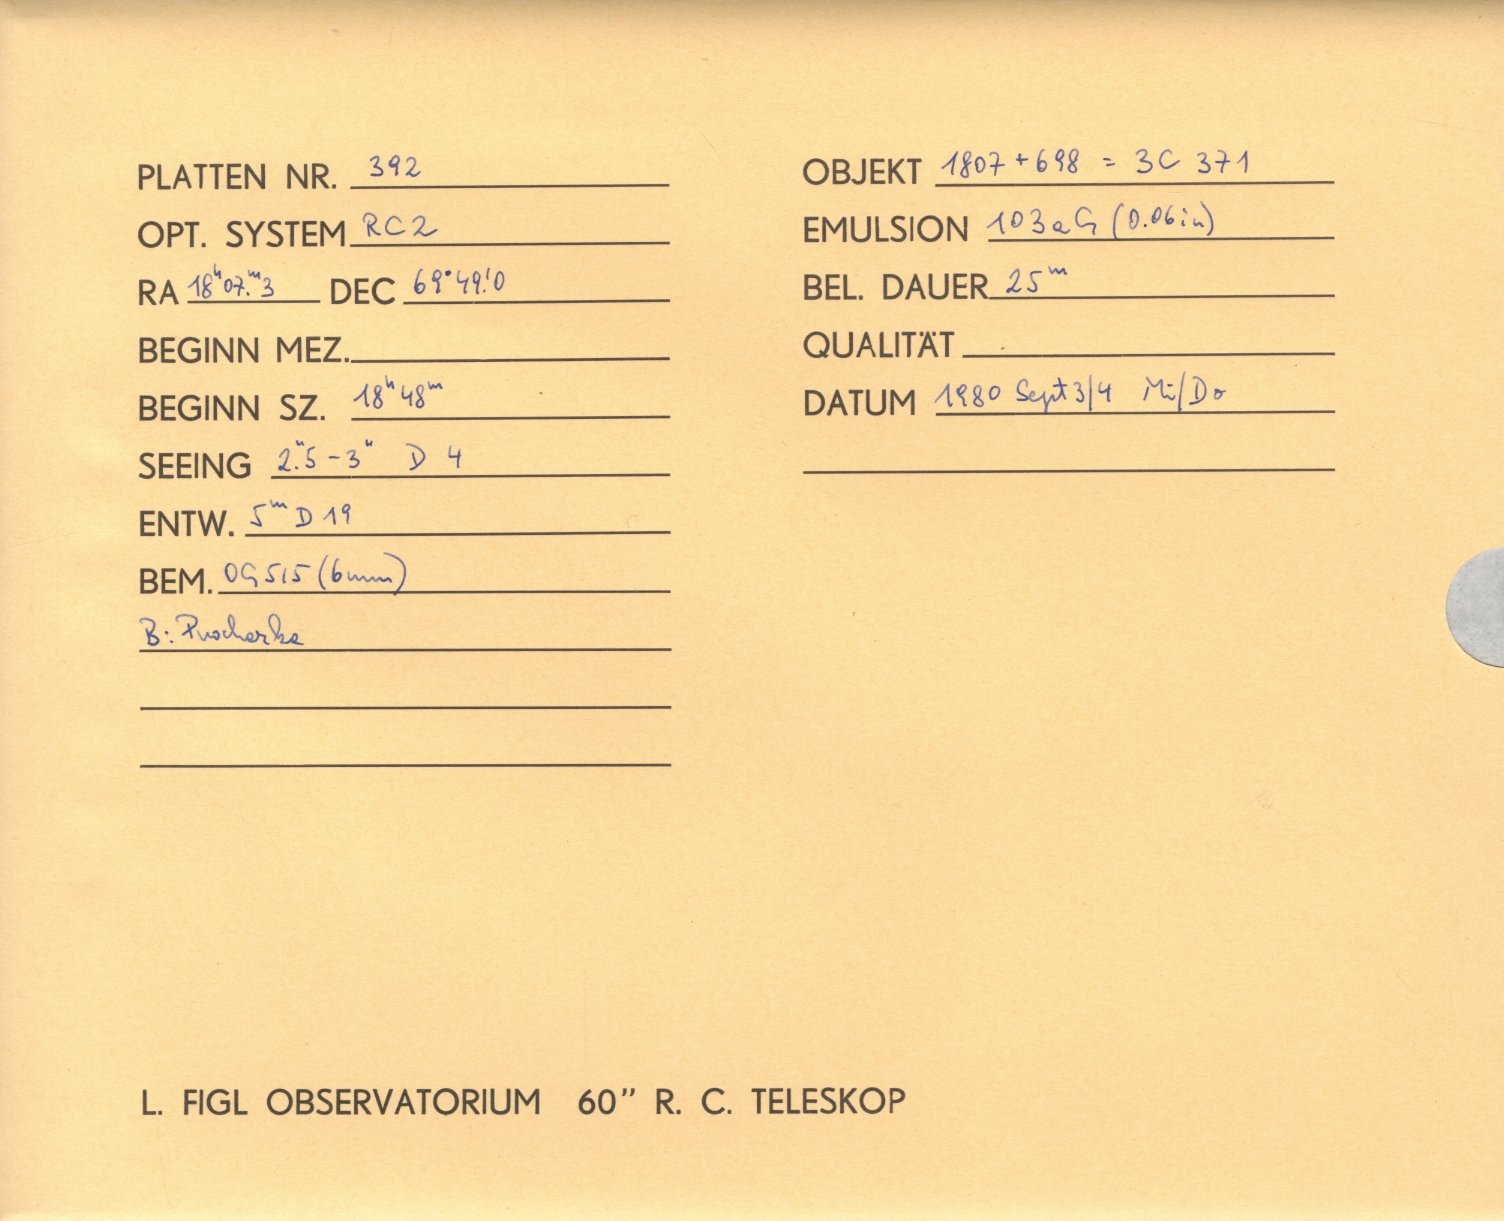 PLATTEN NR. 392
OPT. SYSTEM RC2
RA 18ʰ07.ᵐ3 DEC 69°49!0
BEGINN MEZ.
BEGINN SZ. 18ʰ48ᵐ
SEEING 2."5 - 3" D 4
ENTW. 5ᵐ D 19
BEM. OG515 (6mm)
B: Puscharka
OBJEKT 1807 + 698 = 3C 371
EMULSION 103aG (0.06in)
BEL. DAUER 25ᵐ
QUALITÄT
DATUM 1980 Sept 3/4 Mi/Do
L. FIGL OBSERVATORIUM 60" R. C. TELESKOP